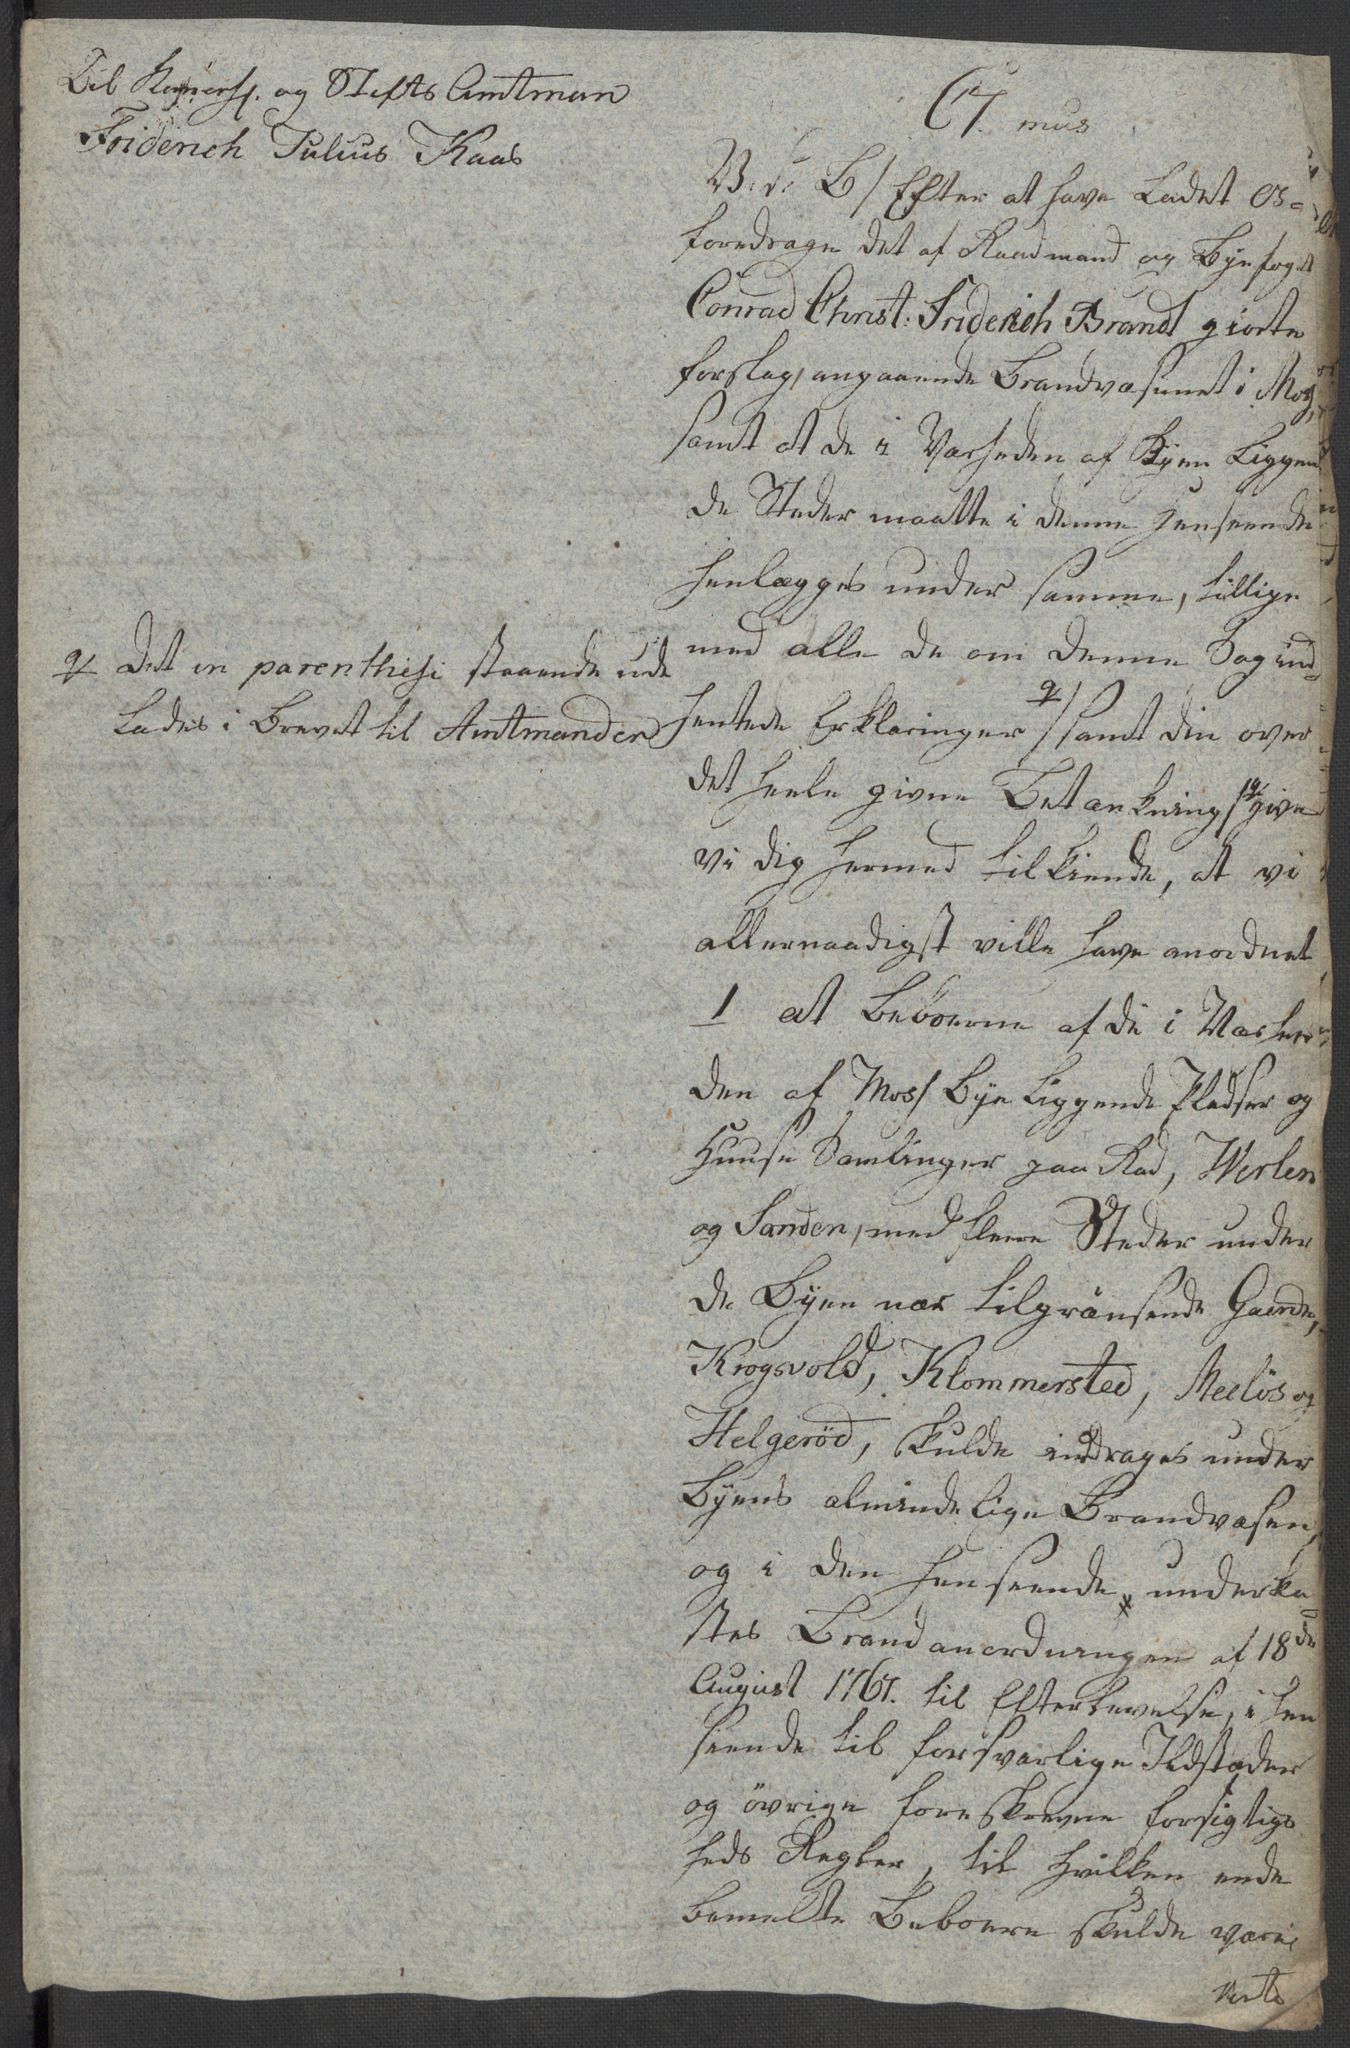 Til Kamerh. og Stifts Amtman
Friderich Julius Kaas
C7. mus
V: s: B / Efter at have Ladet Os
foredrage det af Raadmand og Byefoget
Conrad Christ: Friderich Brandt giorte
forslag, angaaende Brandvæsenet i Mos,
samt at de i Nærheden af Byen Liggen
de Steder maatte i denne Henseende
henlægges under samme, tillige
med alle de om denne Sag ind-
hentede Erklæringer /samt din over
det heele givne Betænkning/ give
Vi dig hermed tilkiende, at vi
allernaadigst ville have anordnet
1 at Beboerne af de i Nærhee
den af Moss Bye Liggende Pladser og
Huuse Samlinger paa Rad, Werlen
og Sanden, med fleere Steder under
de Byen nær tilgrænsende Gaarde,
Krogsvold, Klommersted, Meeløs og
Helgerød, skulde inddrages under
Byens almindelige Brandvæsen,
og i den Henseende underka
stes Brandanordningen af 18de
August 1767. til Efterlevelse, i Hen
seende til forsvarlige Ildstæder
og øvrige foreskrevne forsigtigs
heds Regler, til hvilken ende
bemelte Beboere skulde være
Det in parenthesi staaende ude
Lades i Brevet til Amtmanden